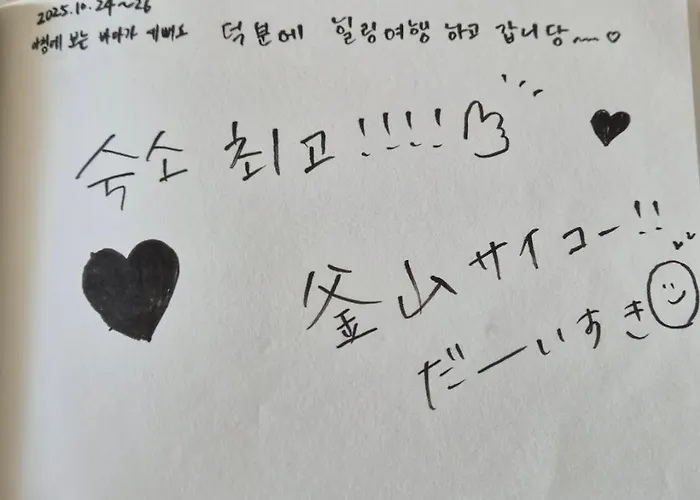 2025.10.24~26
아침에 보는 바다가 예뻐요
덕분에 힐링여행 하고 갑니당~♡
숙소 최고!!!!
釜山サイコー!!
だーいすき